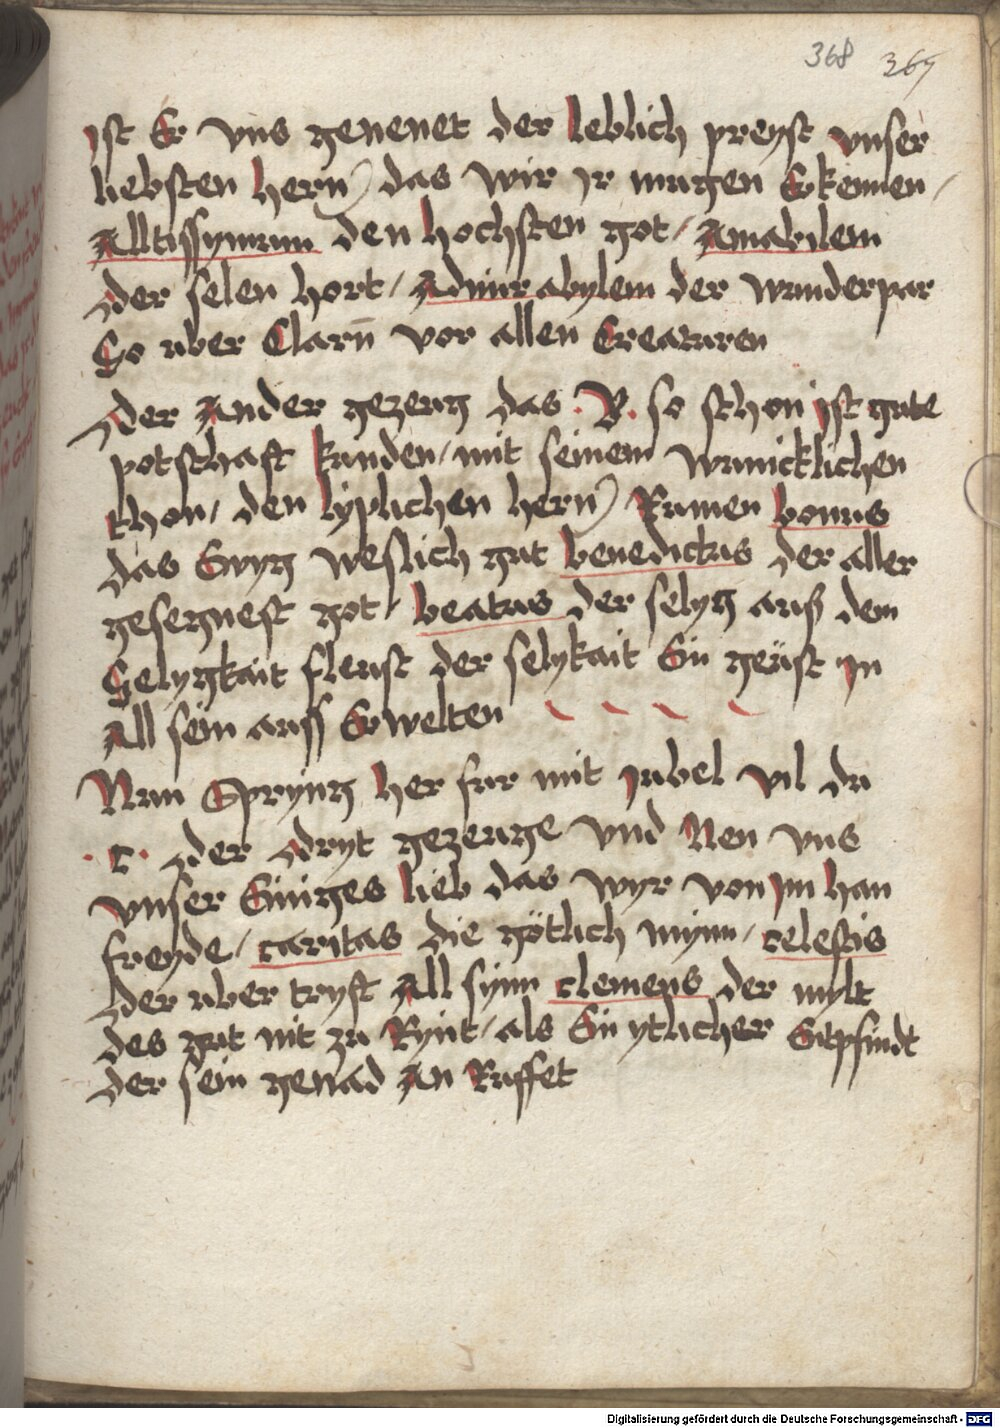 368 367
ist Er vns genenet der leblich preyst vnser
liebsten hern das wir ir mugen Erkennen /
Alltissymum den hochsten got / Amabilem
Der selen hort / Admirabylem der wunderpar
So uber Clarn̄ vor allen Creaturen
Der Ander gezeug das .B. so schon ist gute
potschaft kunden / mit seinem wunicklichen
thon / den lyplichen hern Rumen bonus
das Ewyg weslich gut benedictus der aller
gesegnest got / beatus der selyg auß dem
Selygkait fleust der selykait Ein geüst In
All sein auss Erwelten
Nun Spryng her fur mit iubel vil du
.C. der Dryt gezeuge vnd Nen vns
vnser Einiges lieb das wyr von im han
freyde / caritas die götlich mynn / celestis
Der uber tryft All synn clemens der mylt
des gut nit zu Rynt / als Ein ytlicher Enpfindt
der sein genad An Ruffet
Digitalisierung gefördert durch die Deutsche Forschungsgemeinschaft - DFG